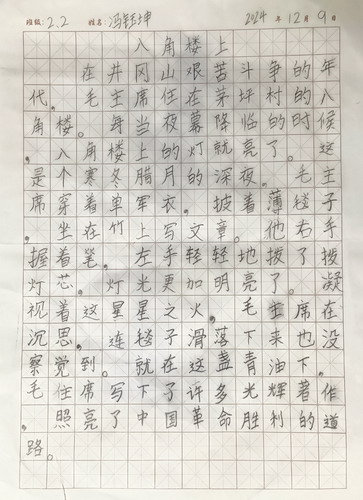 班级: 2.2 姓名: 2024 年 12 月 9 日
入角楼上
在井冈山艰苦斗争的年
代。毛主席任在茅坪村的入
角楼。每当夜幕降临的时候
，入角楼上的灯就亮了。这
是个寒冬腊月的深夜。毛主
席穿着单军衣。披着薄毯子
，坐在竹上写文章。他右手
握着笔。左手轻轻地拨了拨
灯芯。灯光更加明亮了。凝
视着这星星之火，毛主席在
沉思，连毯子滑落下来也没
察觉到。就在这盏青油下。
毛住席写下了许多光辉著作
，照亮了中国革命胜利的道
路。